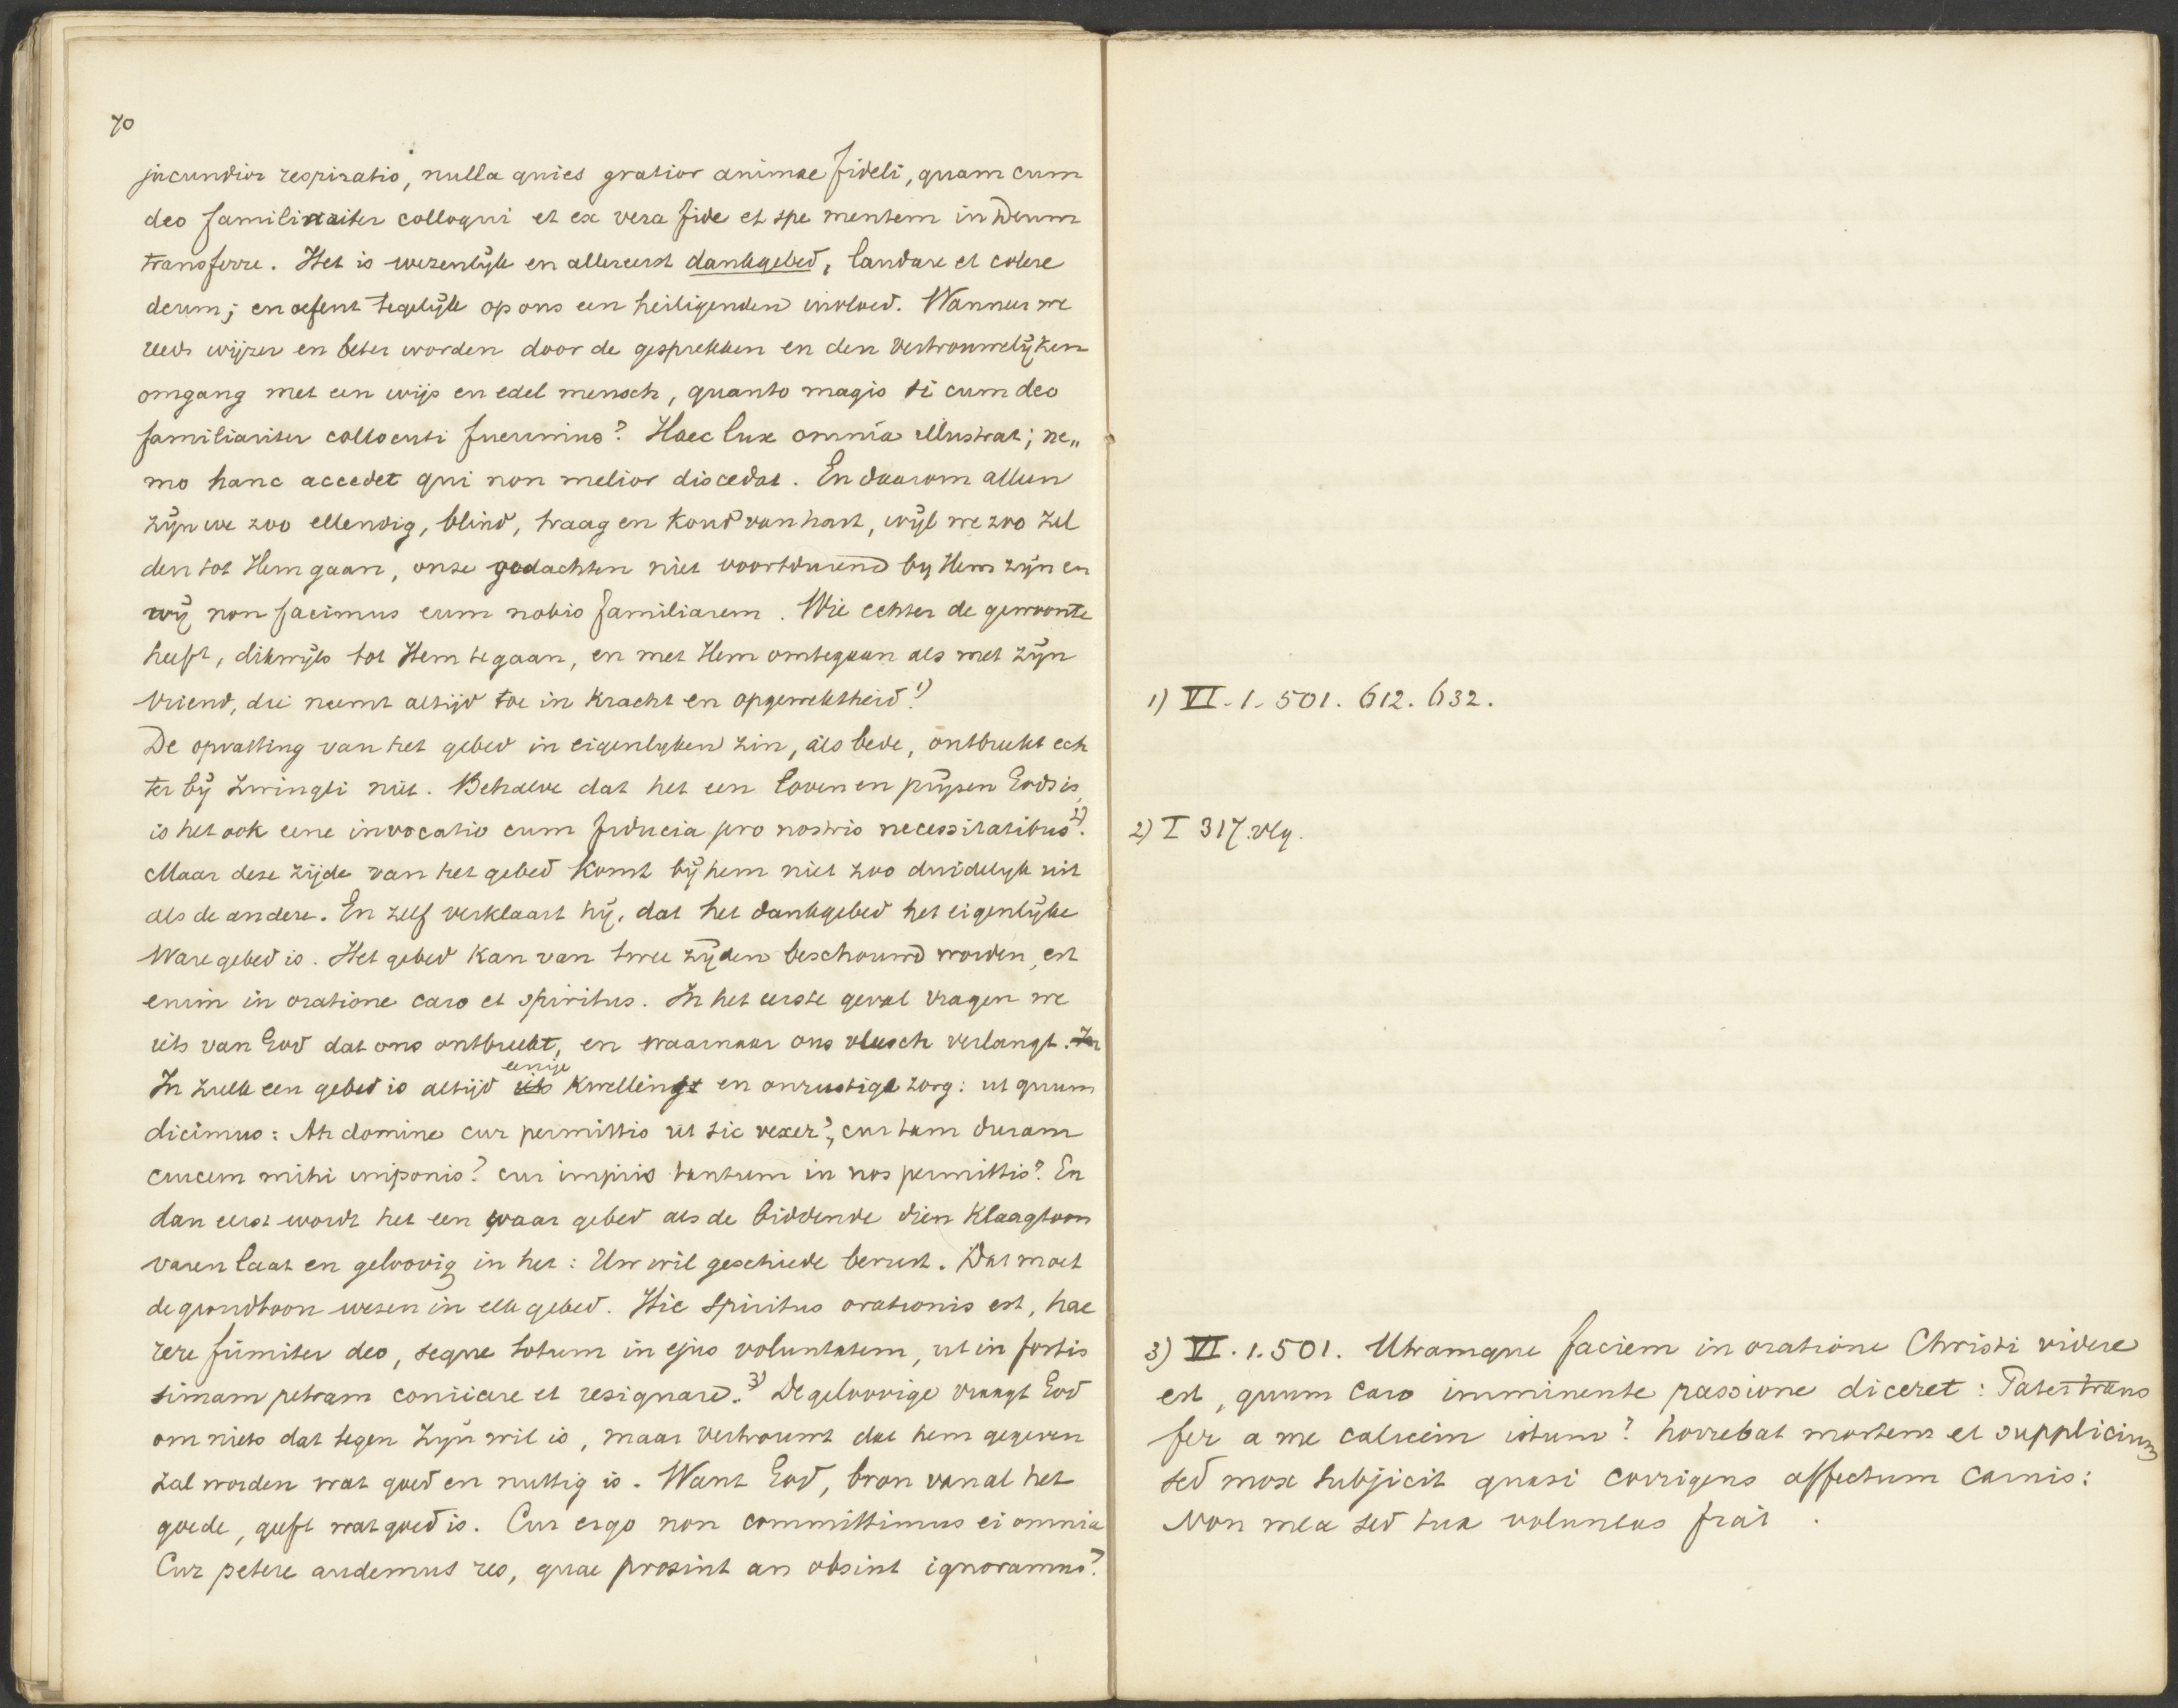 70
jucundior respiratio, nulla quies gratior animae fideli, quam cum
deo familiariter colloqui et ex vera fide et spe mentem in Deum
transferre. Het is wezenlijk en allereerst dankgebed, laudare et colere
deum; en oefent tegelijk op ons een heiligenden invloed. Wanneer we
reeds wijzer en beter worden door de gesprekken en den vertrouwelijken
omgang met een wijs en edel mensch, quanto magis si cum deo
familiariter collocuti fuerimus? Haec lux omnia illustrat; ne„
mo hanc accedet qui non melior discedat. En daarom alleen
zijn we zoo ellendig, blind, traag en koud van hart, wijl we zoo zel
den tot Hem gaan, onze gedachten niet voortdurend by Hem zijn en
wij non facimus eum nobis familiarem. Wie echter de gewoonte
heeft, dikwijls tot Hem te gaan, en met Hem omtegaan als met zijn
vriend, die neemt altijd toe in kracht en opgewektheid.1)
De opvatting van het gebed in eigenlyken zin, als bede, ontbreekt ech
ter bij Zwingli niet. Behalve dat het een loven en prijzen Gods is,
is het ook eene invocatio cum fiducia pro nostris necessitatibus2).
Maar deze zijde van het gebed komt bij hem niet zoo duidelyk uit
als de andere. En zelf verklaart hij, dat het dankgebed het eigenlijke
ware gebed is. Het gebed kan van twee zijden beschouwd worden, est
enim in oratione caro et spiritus. In het eerste geval vragen we
iets van God dat ons ontbreekt, en waarnaar ons vleesch verlangt. In
In zulk een gebed is altijd iets eenige kwelling en onrustige zorg: ut quum
dicimus: Ah domine cur permittis ut sic vexer?, cur tam duram
crucem mihi imponis? cur impiis tantum in nos permittis? En
dan eerst wordt het een waar gebed als de biddende dien klaagtoon
varen laat en geloovig in het: Uw wil geschiede berust. Dat moet
de grondtoon wezen in elk gebed. Hic spiritus orationis est, hae
rere firmiter deo, seque totum in ejus voluntatem, ut in fortis
simam petram coniicere et resignare.3) De geloovige vraagt God
om niets dat tegen Zijn wil is, maar vertrouwt dat hem gegeven
zal worden wat goed en nuttig is. Want God, bron van al het
goede, geeft wat goed is. Cur ergo non committimus ei omnia
Cur petere audemus res, quae prosint an obsint ignoramus?
1) VI. 1. 501. 612. 632.
2) I 317. vlg.
3) VI. 1. 501. Utramque faciem in oratione Christi videre
est, quum caro imminente passione diceret: Pater trans
fer a me calicem istum? horrebat mortem et supplicium
sed mox subjicit quasi corrigens affectum carnis:
Non mea sed tua voluntas fiat.